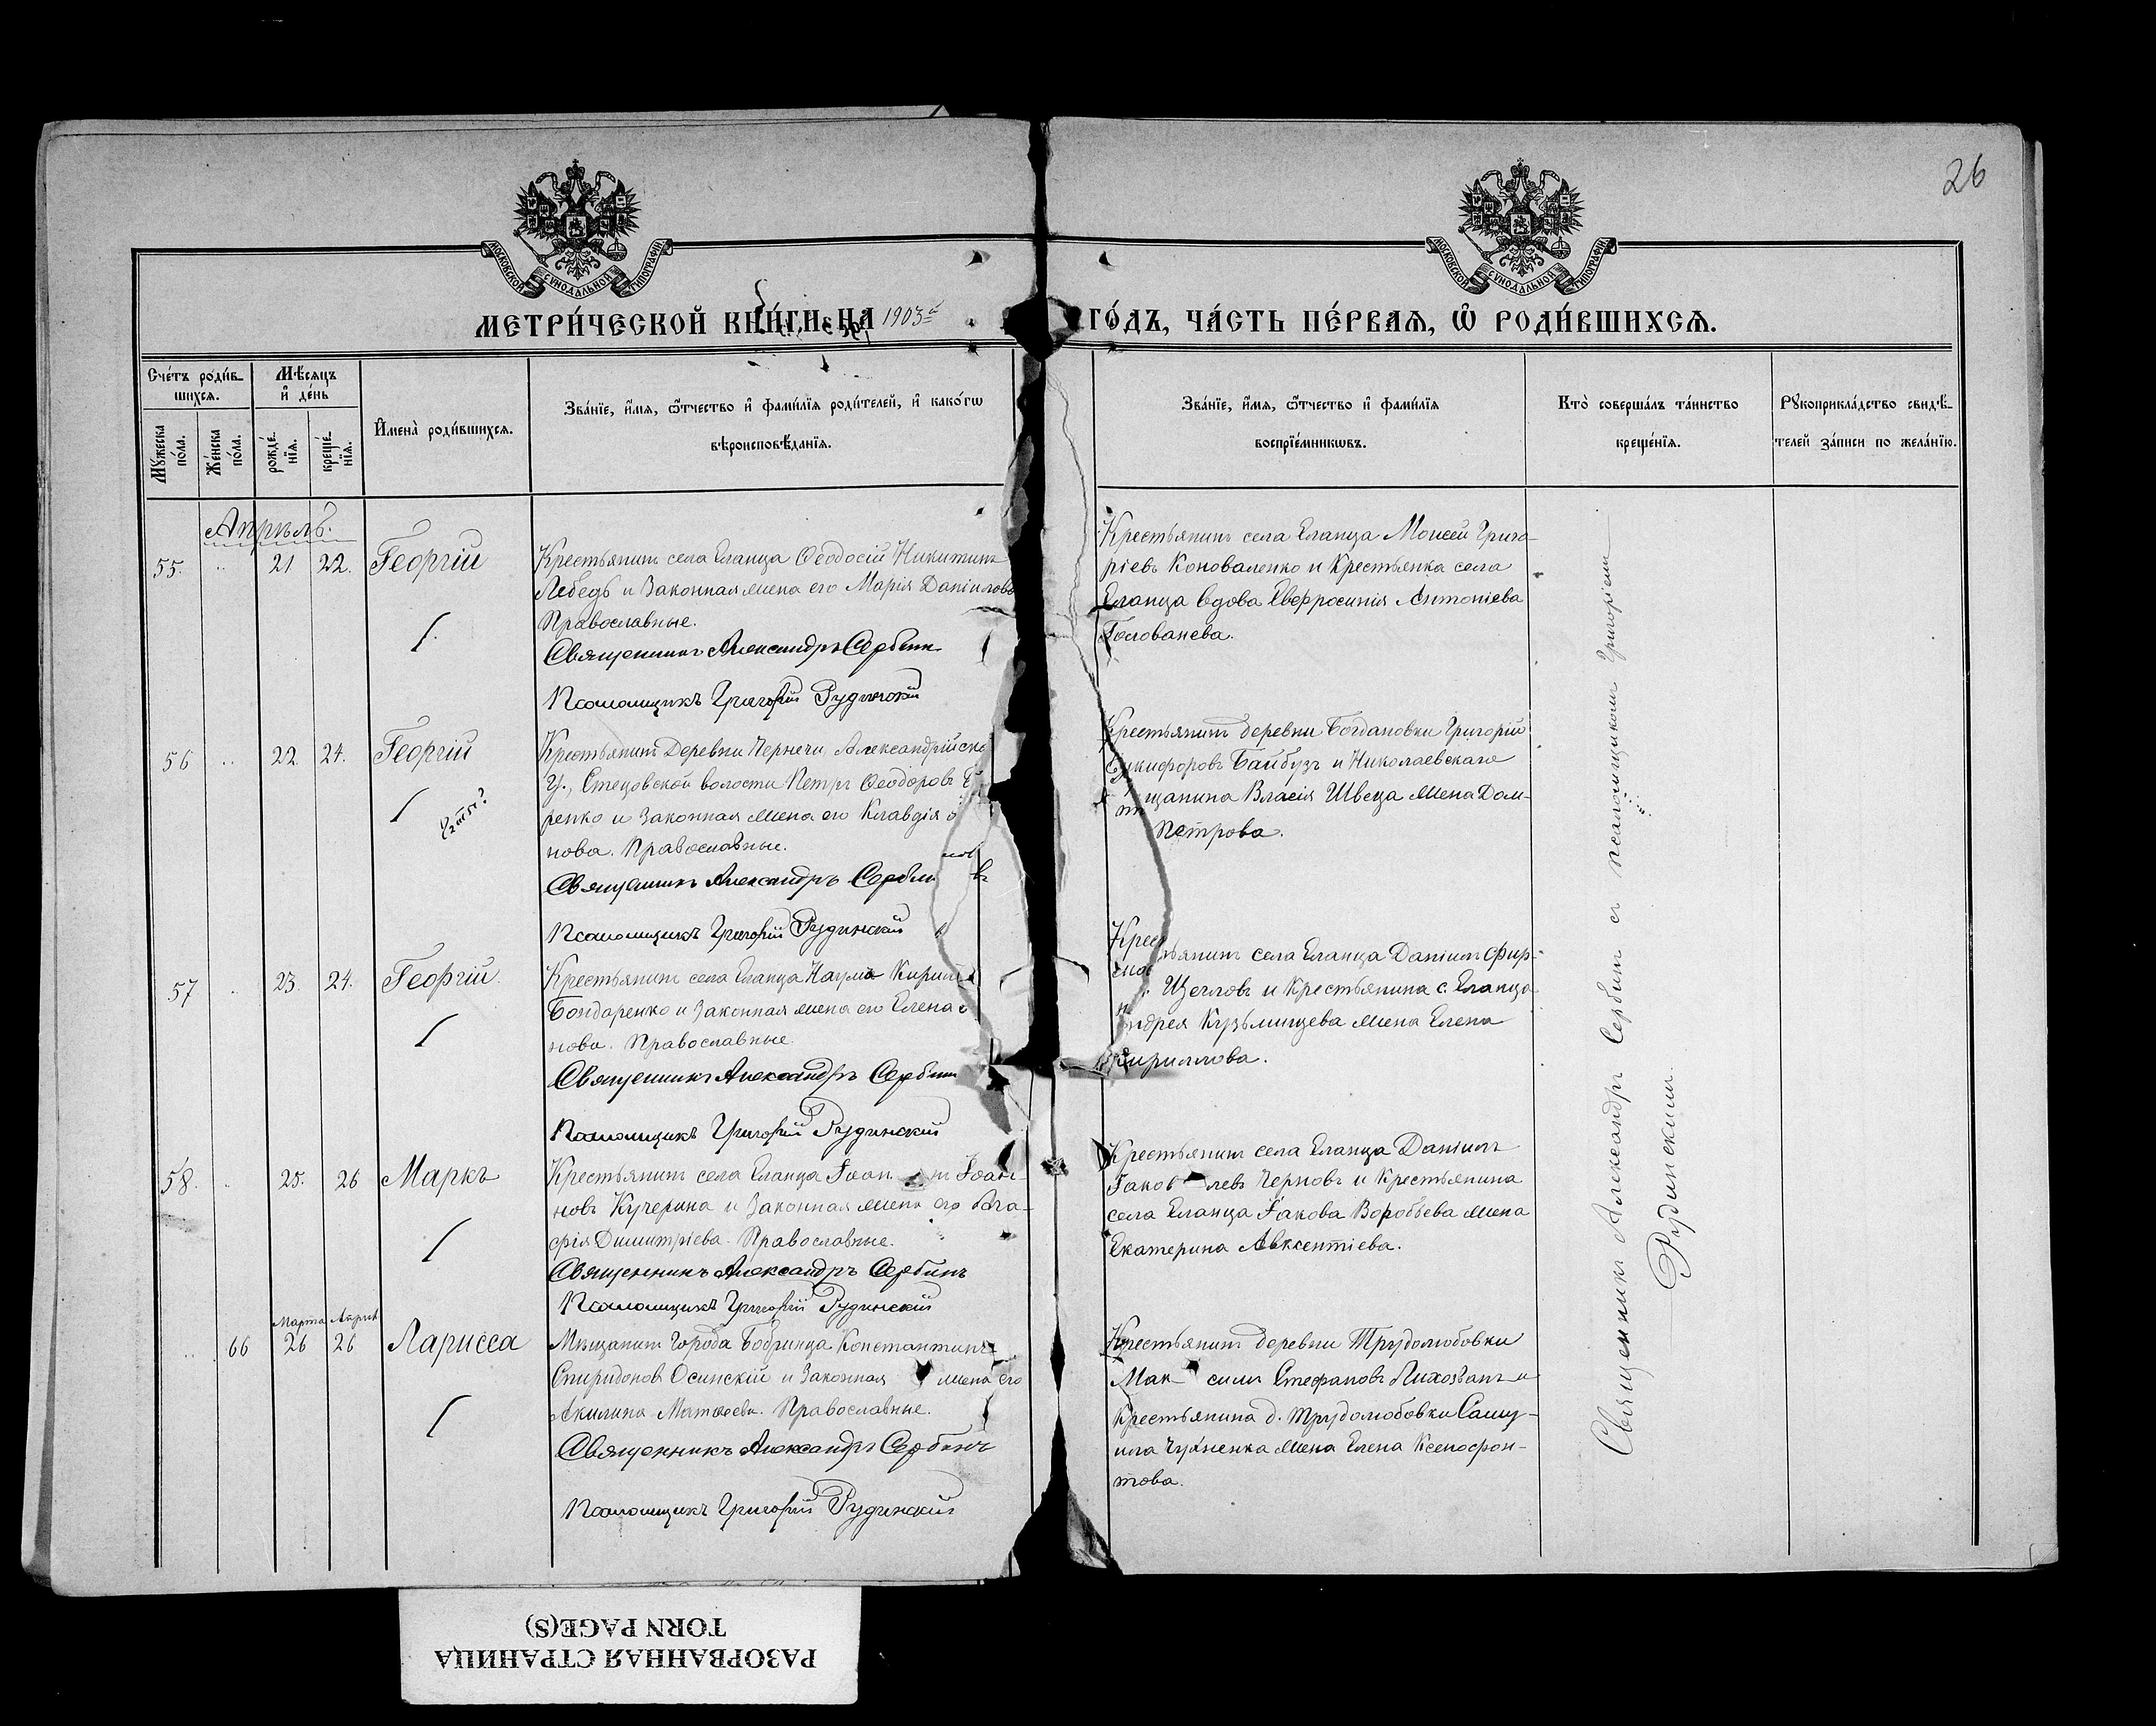 26
МОСКОВСКОЙ СѴНОДАЛЬНОЙ ТИПОГРАФІИ
МОСКОВСКОЙ СѴНОДАЛЬНОЙ ТИПОГРАФІИ
МЕТРИ́ЧЕСКОЙ КНИ́ГИ НА 1903 ГО́ДЪ, ЧА́СТЬ ПЕ́РВАЯ, Ѡ҆ РОДИ́ВШИХСЯ.
Сче́тъ роди́в-
шихся.
Мꙋ́жеска по́ла.
Же́нска по́ла.
Мѣ́сяцъ
и҆ де́нь
рожде́-
нїя.
креще́-
нїя.
И҆мена̀ роди́вшихся.
Зва́нїе, и҆́мя, ѻ҆́тчество и҆ фами́лїя роди́телей, и҆ како́гѡ
вѣроисповѣ́данїя.
Зва́нїе, и҆́мя, ѻ҆́тчество и҆ фами́лїя
воспрїе́мникѡвъ.
Кто̀ соверша́лъ та́инство
креще́нїя.
Рꙋкоприкла́дство свидѣ́-
телей за́писи по жела́нїю.
Апрѣль.
55. 21 22. Георгій
Крестьянинъ села Еланца Ѳеодосій Никитинъ
Лебедь и законная жена его Марія Даніилова
Православные.
Священникъ Александръ Сербинъ
Псаломщикъ Григорій Рудинскій
Крестьянинъ села Еланца Моисей Григо-
ріевъ Коноваленко и крестьянка села
Еланца вдова Евфросинія Антоніева
Голованева.
56 22 24. Георгій
Крестьянинъ деревни Чернечи, Александрійск
у., Стецовской волости Петръ Ѳеодоровъ
ренко и законная жена его Клавдія
нова. Православные.
Священникъ Александръ Серби
Псаломщикъ Григорій Рудинскій
Крестьянинъ деревни Богдановки Григорій
Никифоровъ Байбузъ и Николаевскаго
щанина Власія Швеца жена Дом-
Петрова.
57 23. 24. Георгій.
Крестьянинъ села Еланца Наумъ Кирил
Бондаренко и законная жена его Елена
нова. Православные.
Священникъ Александръ Сербин
Псаломщикъ Григорій Рудинскій
Крестьянинъ села Еланца Даніилъ Фир-
Щегловъ и крестьянина с. Еланца
Андрея Кузьмищева жена Елена
Кириллова.
58. 25. 26 Маркъ
Крестьянинъ села Еланца Іоан Іоан-
новъ Кучерина и законная жена его Ага-
фія Димитріева. Православные.
Священникъ Александръ Сербинъ
Псаломщикъ Григорій Рудинскій
Крестьянинъ села Еланца Даніилъ
Іаковлевъ Черновъ и крестьянина
села Еланца Іакова Воробьева жена
Екатерина Авксентіева.
Марта Апрѣл
66 26 26 Ларисса
Мѣщанинъ города Бобринца Константинъ
Спиридоновъ Осинскій и законная жена его
Акилина Матѳеева. Православные.
Священникъ Александръ Сербинъ
Псаломщикъ Григорій Рудинскій
Крестьянинъ деревни Трудолюбовки
Максимъ Стефановъ Лихозванъ и
крестьянина д. Трудолюбовки Саму-
ила жена Елена Ксенофон-
това.
Священникъ Александръ Сербинъ съ псаломщикомъ Григоріемъ
Рудинскимъ.
РАЗОРВАННАЯ СТРАНИЦА
TORN PAGE(S)